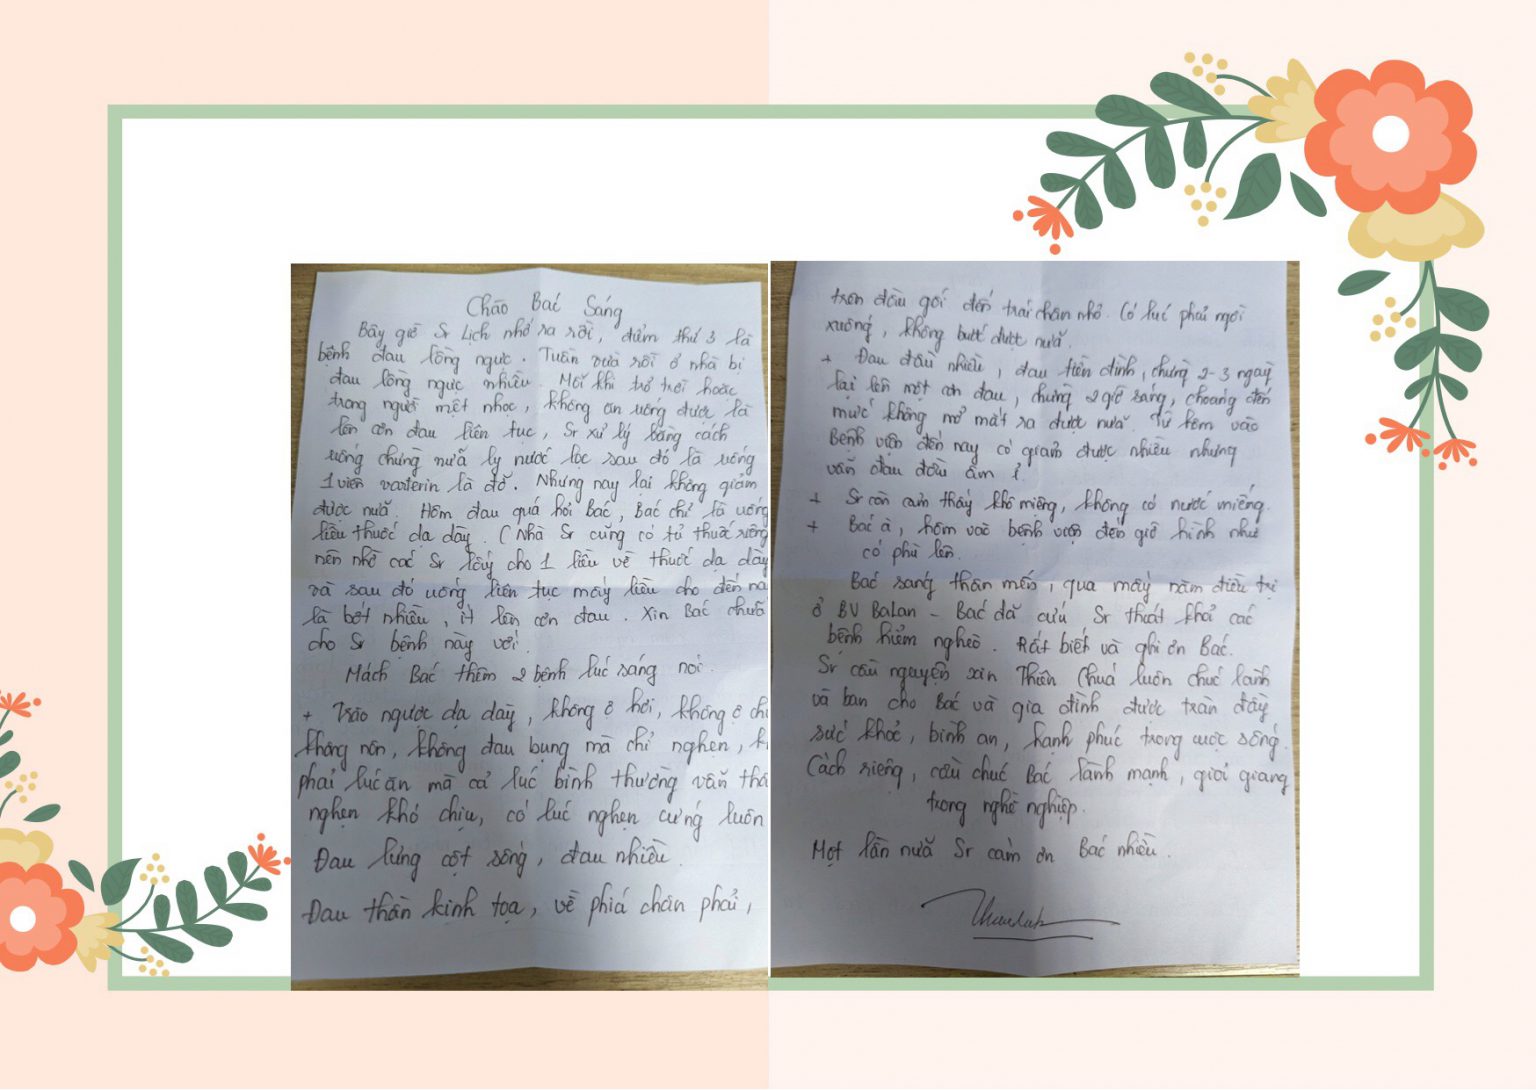 Chào Bać Sáng
Bây giờ Sr Lịch nhớ ra rồi, điểm thứ 3 là
bệnh đau lồng ngực. Tuần vừa rồi ở nhà bị
đau lồng ngực nhiều. Mỗi khi trở trời hoặc
trong người mệt nhọc, không ăn uống được là
lên cơn đau liên tục, Sr xử lý bằng cách
uống chừng nửa ly nước lọc sau đó là uống
1 viên varterin là đỡ. Nhưng nay lại không giảm
được nữa. Hôm đau quá hỏi Bác, Bác chỉ là uống
liều thuốc dạ dày. (Nhà Sr cũng có tủ thuốc riêng
nên nhờ các Sr lấy cho 1 liều về thuốc dạ dày
và sau đó uống liên tục mấy liều cho đến na
là bớt nhiều, ít lên cơn đau. Xin Bác chữa
cho Sr bệnh này với.
Mách Bác thêm 2 bệnh lúc sáng nói.
+ Trào ngược dạ dày, không ợ hơi, không ợ ch
không nôn, không đau bụng mà chỉ nghẹn, k
phải lúc ăn mà cả lúc bình thường vẫn thấ
nghẹn khó chịu, có lúc nghẹn cứng luôn
Đau lưng cột sống, đau nhiều.
Đau thần kinh tọa, về phía chân phải,
trên đầu gối đến trái chân nhỏ. Có lúc phải ngồi
xuống, không bước được nữa.
+ Đau đầu nhiều, đau tiền đình, chừng 2-3 ngày
lại lên một cơn đau, chừng 2 giờ sáng, choáng đến
mức không mở mắt ra được nữa. Từ hôm vào
Bệnh viện đến nay có giảm được nhiều nhưng
vẫn đau đầu âm ỉ.
+ Sr còn cảm thấy khô miệng, không có nước miếng.
+ Bác à, hôm vào bệnh viện đến giờ hình như
có phù lên.
Bác sáng thân mến, qua mấy năm điều trị
ở BV BaLan - Bác đã cứu Sr thoát khỏi các
bệnh hiểm nghèo. Rất biết và ghi ơn Bác.
Sr cầu nguyện xin Thiên Chúa luôn chúc lành
và ban cho Bác và gia đình được tràn đầy
sức khoẻ, bình an, hạnh phúc trong cuộc sống.
Cách riêng, cầu chúc Bác lành mạnh, giỏi giang
trong nghề nghiệp.
Một lần nữa Sr cảm ơn Bác nhiều.